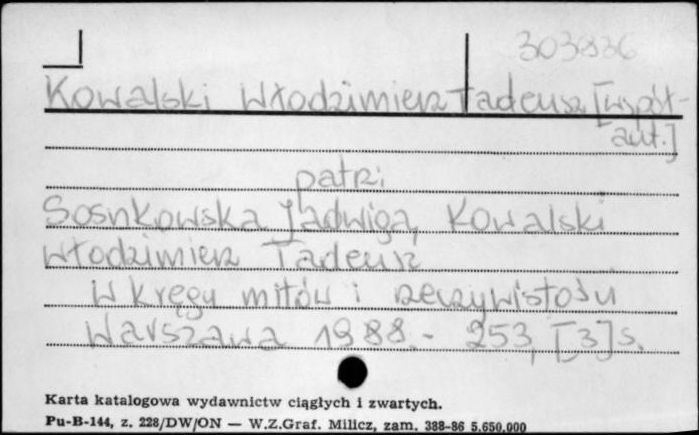 303836
Kowalski Włodzimierz Tadeusz [współ-
aut.]
patrz:
Sosnkowska Jadwiga, Kowalski
Włodzimierz Tadeusz
W kręgu mitów i rzeczywistości
Warszawa 1988.- 253, [3]s.
Karta katalogowa wydawnictw ciągłych i zwartych.
Pu-B-144, z. 228/DW/ON — W.Z.Graf. Milicz, zam. 388-86 5.650.000